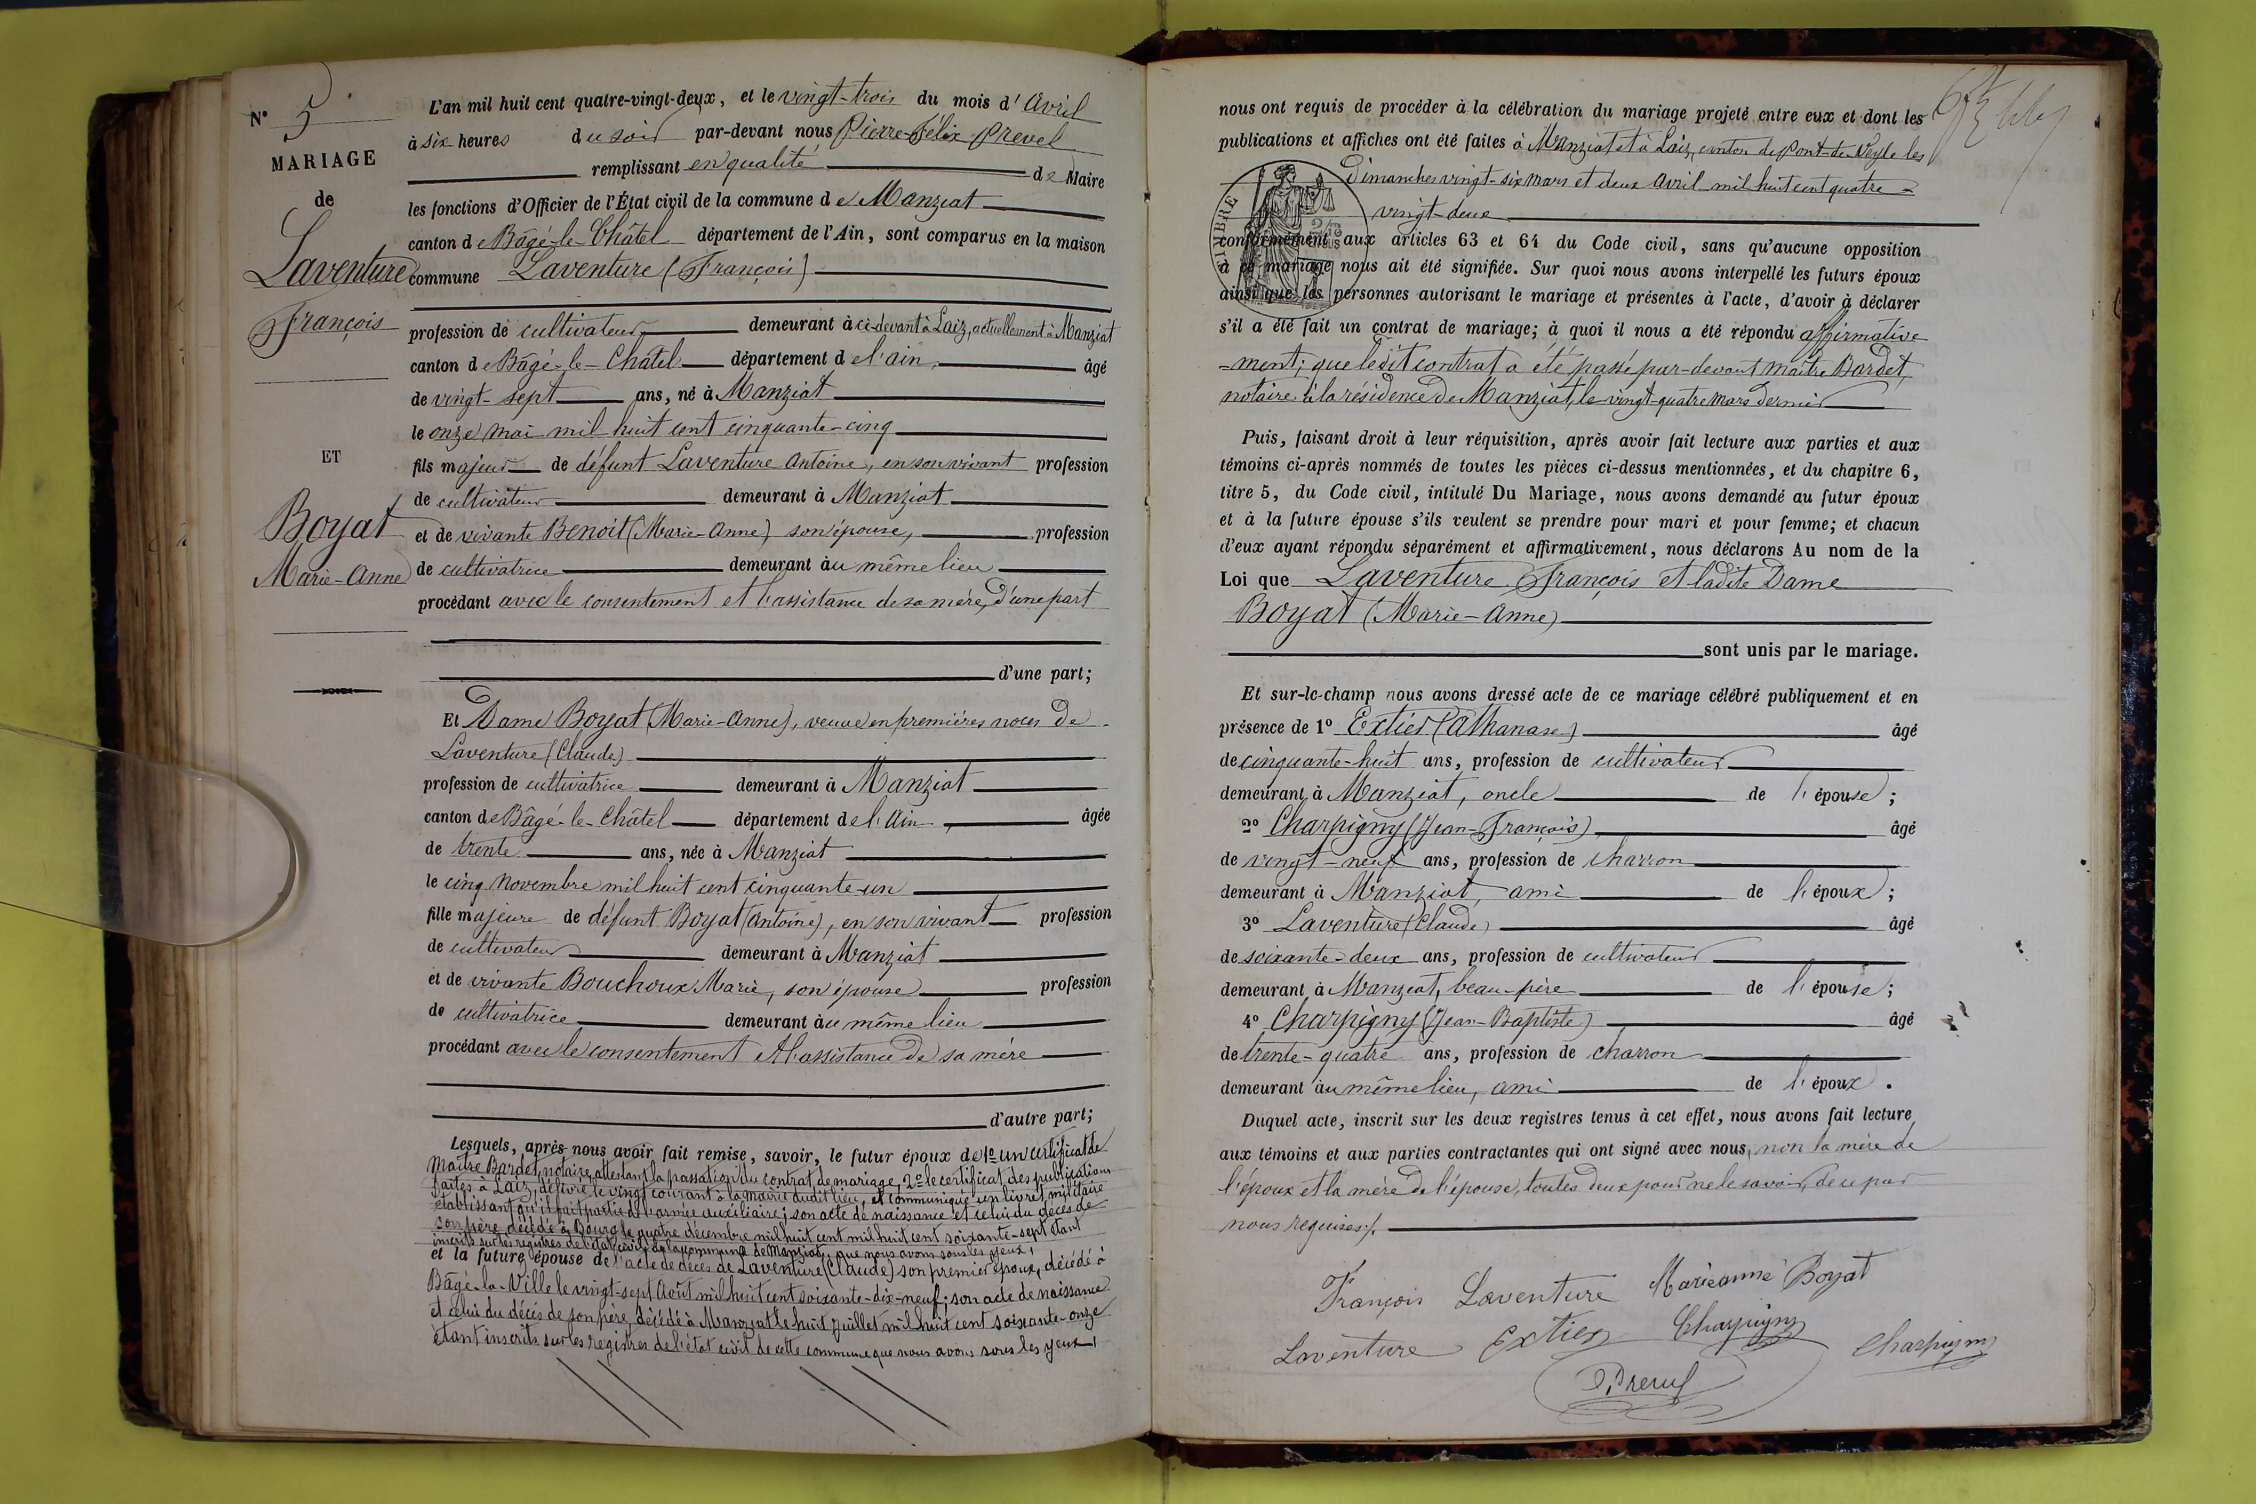 N° 5
MARIAGE
de
Laventure
François
ET
Boyat
Marie-Anne
L'an mil huit cent quatre-vingt-deux, et le vingt-trois du mois d'Avril
à six heures du soir par-devant nous Pierre-Félix Prevel
remplissant en qualité de Maire
les fonctions d'Officier de l'État civil de la commune de Manziat
canton de Bâgé-le-Châtel département de l'Ain, sont comparus en la maison
commune Laventure (François)
profession de cultivateur demeurant à ci-devant à Laiz, actuellement à Manziat
canton de Bâgé-le-Châtel département de l'ain, âgé
de vingt-sept ans, né à Manziat
le onze mai mil huit cent cinquante-cinq
fils majeur de défunt Laventure Antoine, en son vivant profession
de cultivateur demeurant à Manziat
et de vivante Benoit (Marie-Anne) son épouse, profession
de cultivatrice demeurant au même lieu
procédant avec le consentement et l'assistance de sa mère, d'une part
d'une part;
Et Dame Boyat (Marie-Anne), veuve en premières noces de
Laventure (Claude)
profession de cultivatrice demeurant à Manziat
canton de Bâgé-le-Châtel département de l'Ain, âgée
de trente ans, née à Manziat
le cinq Novembre mil huit cent cinquante-un
fille majeure de défunt Boyat (Antoine), en son vivant profession
de cultivateur demeurant à Manziat
et de vivante Bouchoux Marie, son épouse profession
de cultivatrice demeurant au même lieu
procédant avec le consentement et l'assistance de sa mère
d'autre part;
Lesquels, après nous avoir fait remise, savoir, le futur époux de 1° un certificat de
Maître Bardet, notaire, attestant la passation du contrat de mariage, 2° le certificat des publications
faites à Laiz, délivré le vingt courant à la mairie dudit lieu, et communiqué un livret militaire
établissant qu'il fait partie de l'armée auxiliaire; son acte de naissance et celui du décès de
son père décédé à Bourg le quatre décembre mil huit cent mil huit cent soixante-sept étant
inscrits sur les registres de l'état civil de la commune de Manziat, que nous avons sous les yeux,
et la future épouse de l'acte de décès de Laventure (Claude) son premier époux, décédé à
Bâgé-la-Ville le vingt-sept Août mil huit cent soixante-dix-neuf; son acte de naissance
et celui du décès de son père, décédé à Manziat le huit Juillet mil huit cent soixante-onze
étant inscrits sur les registres de l'état civil de cette commune que nous avons sous les yeux,
nous ont requis de procéder à la célébration du mariage projeté entre eux et dont les
publications et affiches ont été faites à Manziat et à Laiz, canton de Pont-de-Veyle les
Dimanches vingt-six Mars et deux Avril mil huit cent quatre-
vingt-deux
TIMBRE
conformément aux articles 63 et 64 du Code civil, sans qu'aucune opposition
à ce mariage nous ait été signifiée. Sur quoi nous avons interpellé les futurs époux
ainsi que les personnes autorisant le mariage et présentes à l'acte, d'avoir à déclarer
s'il a été fait un contrat de mariage; à quoi il nous a été répondu affirmative
-ment; que ledit contrat a été passé par-devant maître Bardet,
notaire à la résidence de Manziat, le vingt-quatre mars dernier
Puis, faisant droit à leur réquisition, après avoir fait lecture aux parties et aux
témoins ci-après nommés de toutes les pièces ci-dessus mentionnées, et du chapitre 6,
titre 5, du Code civil, intitulé Du Mariage, nous avons demandé au futur époux
et à la future épouse s'ils veulent se prendre pour mari et pour femme; et chacun
d'eux ayant répondu séparément et affirmativement, nous déclarons Au nom de la
Loi que Laventure François et ladite Dame
Boyat (Marie-Anne)
sont unis par le mariage.
Et sur-le-champ nous avons dressé acte de ce mariage célébré publiquement et en
présence de 1° Extier (Athanase) âgé
de cinquante-huit ans, profession de cultivateur
demeurant à Manziat, oncle de l'épouse;
2° Charpigny (Jean-François) âgé
de vingt-neuf ans, profession de charron
demeurant à Manziat, ami de l'époux;
3° Laventure (Claude) âgé
de soixante-deux ans, profession de cultivateur
demeurant à Manziat, beau-père de l'épouse;
4° Charpigny (Jean-Baptiste) âgé
de trente-quatre ans, profession de charron
demeurant au même lieu, ami de l'époux.
Duquel acte, inscrit sur les deux registres tenus à cet effet, nous avons fait lecture
aux témoins et aux parties contractantes qui ont signé avec nous, non la mère de
l'époux et la mère de l'épouse, toutes deux pour ne le savoir, de ce par
nous requises/.
François Laventure Marieanne Boyat
Laventure Extier Charpigny Charpigny
P. Prevel